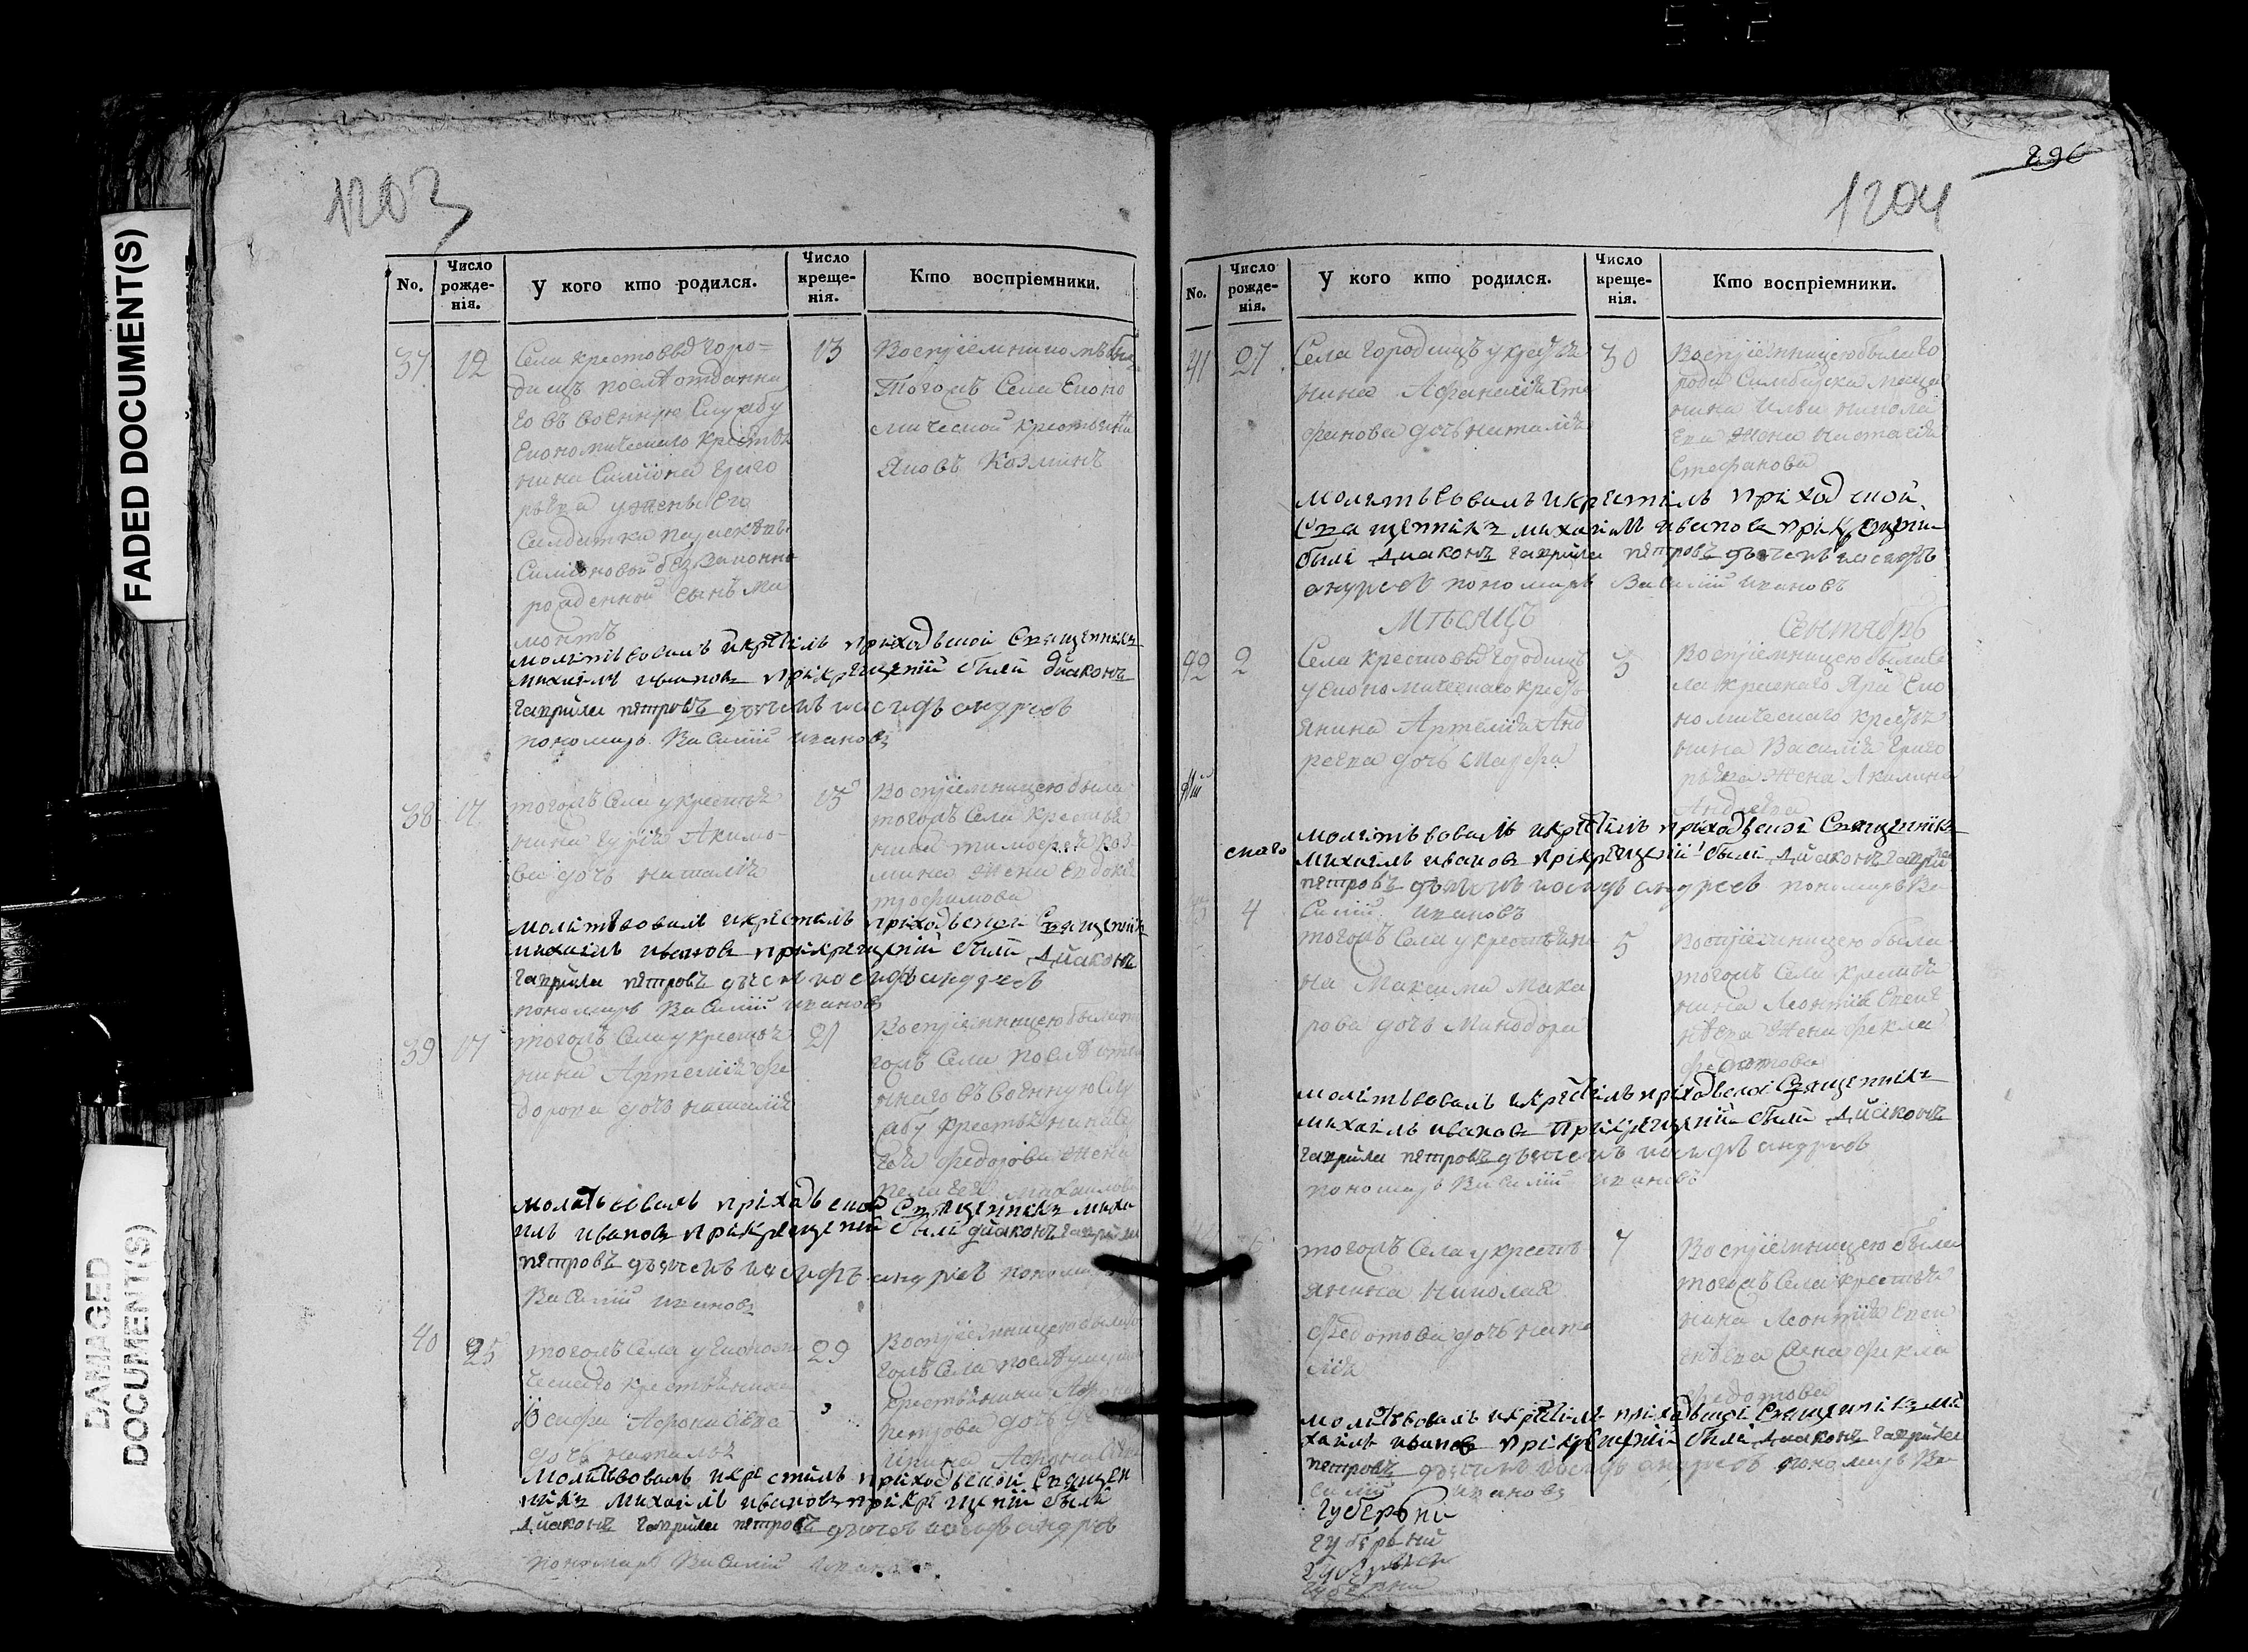 FADED DOCUMENT(S)
DAMAGED DOCUMENT(S)
1203
No.
Число рожде-нія.
У кого кто родился.
Число креще-нія.
Кто воспріемники.
37
12
Села крестовыхъ горо=
дищъ послѣ отданна
го въ военную Службу
Економическаго крестья
нина Симиона Григо
рьева у жены Его
Солдатки
Симионовой беззаконно
рожденной сынъ Ма
монтъ
13
Воспріемникомъ былъ
Тогожъ Села Еконо
мической крестьянинъ
Яковъ Козминъ
молитвовалъ и крестилъ приходской Священникъ
михаилъ ивановъ при крещеніи были диаконъ
гаврила петровъ дьячекъ иосифъ андреевъ
пономарь Василий ивановъ
38
тогожъ Села у крестья
нина Гурія Акимо-
ва дочь наталія
15
Воспріемницею была
тогожъ Села крестья
нина тимофея Коз
мина жена Евдокия
трофимова
молитвовалъ и крестилъ приходской Священникъ
михаилъ ивановъ при крещеніи были диаконъ
гаврила петровъ дьячекъ иосифъ андреевъ
пономарь Василий ивановъ
39
17
тогожъ Села у крестья
нина Артемія Фе
дорова дочь наталія
21
Воспріемницею была то
гожъ Села послѣ отда
ннаго въ военную Слу
жбу крестьянина
Федорова жена
Пелагея михаилова
молитвовалъ приходской Священникъ миха
илъ ивановъ при крещеніи были диаконъ гаврила
петровъ дьячекъ иосифъ андреевъ пономарь
Василий ивановъ
40
25
тогожъ Села у Економи
ческаго крестьянина
Иосифа Афонасьева
дочь наталья
29
Воспріемницею была то
гожъ Села
крестьянина
петрова дочь
Ирина
молитвовалъ и крестилъ приходской Священ
никъ михаилъ ивановъ при крещеніи были
диаконъ гаврила петровъ дьячекъ иосифъ андреевъ
пономарь Василий ивановъ
296
1204
No.
Число рожде-нія.
У кого кто родился.
Число креще-нія.
Кто воспріемники.
41
27
Села городищъ у крестья
нина Афанасія Сте
фанова дочь наталія
30
Воспріемницею была го
рода Симбирска меща
нина Ильи никола
ева жена настасія
Стефанова
молитвовалъ и крестилъ приходской
Священникъ михаилъ ивановъ при крещении
были диаконъ гаврила петровъ дьячекъ иосифъ
андреевъ пономарь Василий ивановъ
Мѣсяцъ
Сентябрь
42
2
Села крестовыхъ городищъ
у Економическаго кресть
янина Артемія Анд
реева дочь Марфа
3
Воспріемницею была Се
ла краснаго Яра Еко
номическаго крестья
нина Василія Григо
рьева жена Акилина
Андреева
скаго
молитвовалъ и крестилъ приходской Священникъ
михаилъ ивановъ при крещеніи были диаконъ гаврила
петровъ дьячекъ иосифъ андреевъ пономарь Ва
силий ивановъ
4
тогожъ Села у крестьяни
на Максима Мака
рова дочь Минодора
5
Воспріемницею была
тогожъ Села крестья
нина Леонтія Евсиг
нѣева жена фекла
федотова
молитвовалъ и крестилъ приходской Священникъ
михаилъ ивановъ при крещеніи были диаконъ
гаврила петровъ дьячекъ иосифъ андреевъ
пономарь Василий ивановъ
6
тогожъ Села у кресть
янина николая
Федотова дочь ната
лія
7
Воспріемницею была
тогожъ Села крестья
нина Леонтія Евси
гнѣева жена фекла
федотова
молитвовалъ и крестилъ приходской Священникъ ми
хаилъ ивановъ при крещеніи были диаконъ гаврила
петровъ дьячекъ иосифъ андреевъ пономарь Ва
силий ивановъ
губерьни
губерьний
губерни